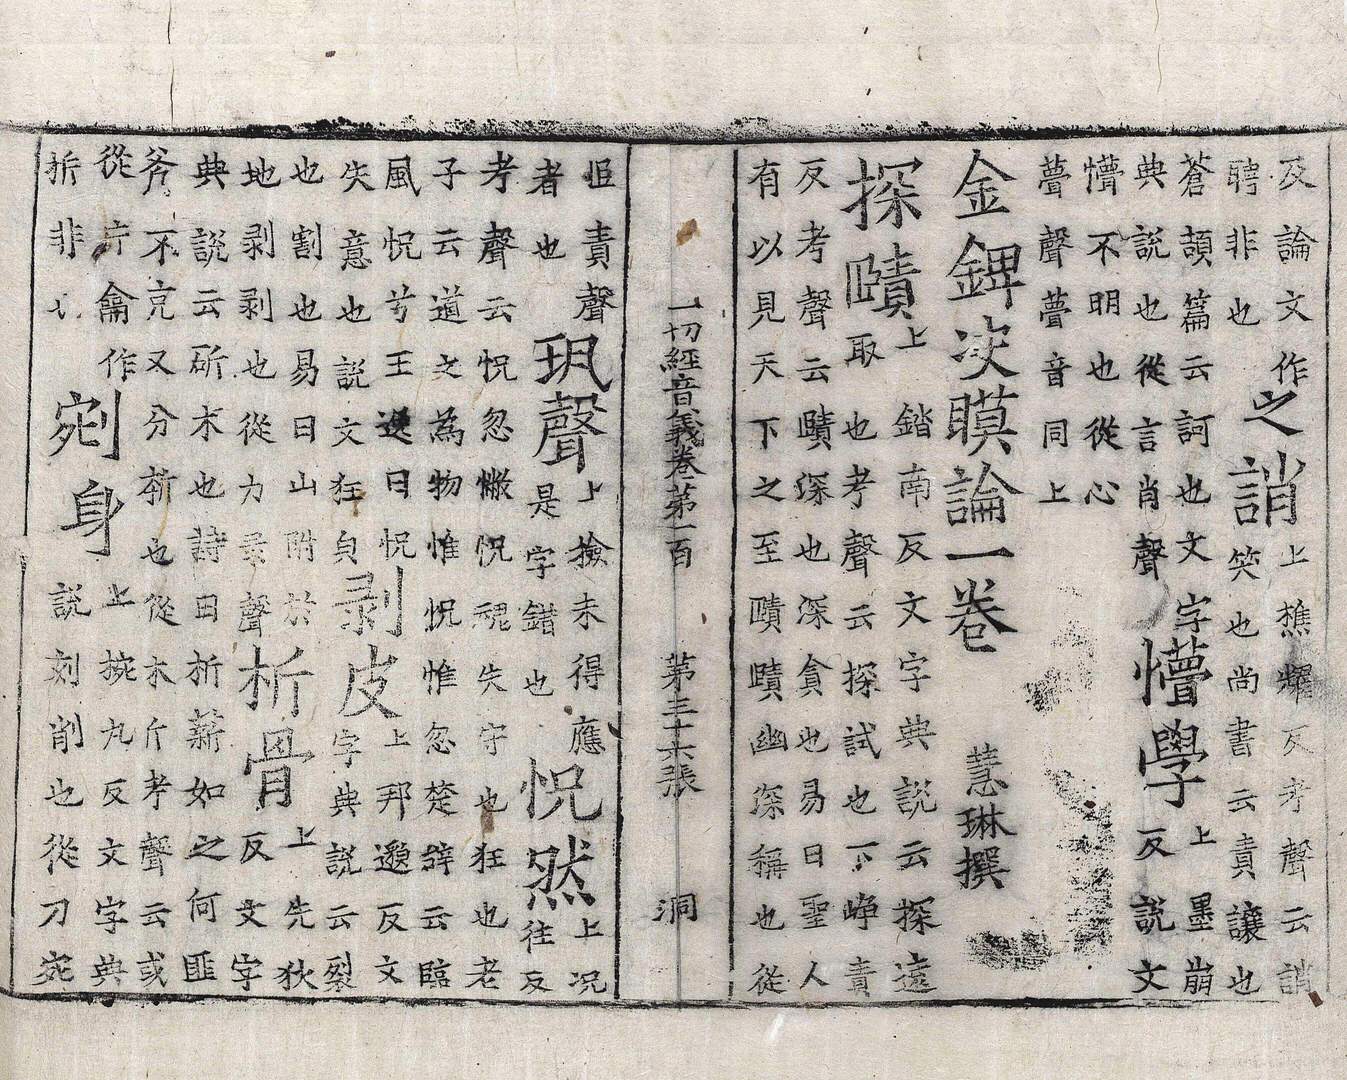 及論文作
聘非也
之誚
上樵燿反考聲云誚
笑也尚書云責讓也
蒼頡篇云訶也文字
典說也從言肖聲
懵學
上墨崩
反說文
懵不明也從心
瞢聲瞢音同上
金錍決瞙論一卷 慧琳撰
探賾
上踏南反文字典說云探遠
取也考聲云探試也下崢責
反考聲云賾深也深貪也易曰聖人
有以見天下之至賾賾幽深稱也從
一切經音義卷第一百 第三十六張 洞
𦣞責聲
者也
玐聲
上撿未得應
是字錯也
怳然
上况
往反
考聲云怳忽憿怳魂失守也狂也老
子云道之為物惟怳惟忽楚辭云臨
風怳兮王逸曰怳
失意也說文狂皃
剥皮
上邦邈反文
字典說云裂
也割也易曰山附於
地剥剥也從力彔聲
析骨
上先狄
反文字
典說云斫木也詩曰析薪如之何匪
斧不克又分㭊也從木斤考聲云或
從片𠎤作
析非也
剜身
上捥丸反文字典
說刻削也從刀宛